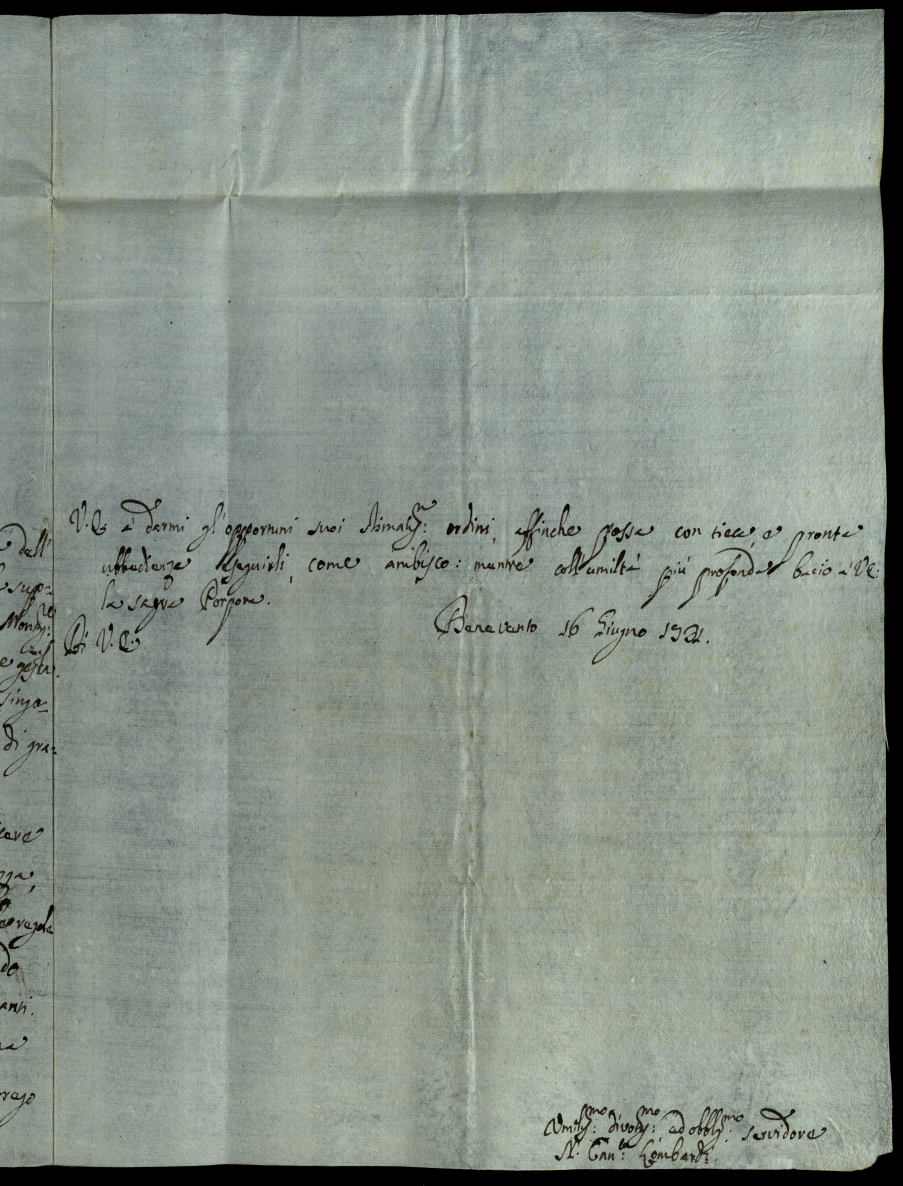 V.E. à darmi gl'opportuni suoi stimatss.mi: ordini, affinche possa con tutta, e pronta
ubbedienza esseguirli, come ambisco: mentre coll'umiltà più profonda bacio à V.E:
la sagra Porpora.
Di V.E.
Benevento 16 Giugno
Umiliss.mo: divotiss.mo: ed obblig.mo: servidore
Can.co Lombardi.
dell'
sup=
gesta.
singo=
di gra=
regola
anti.